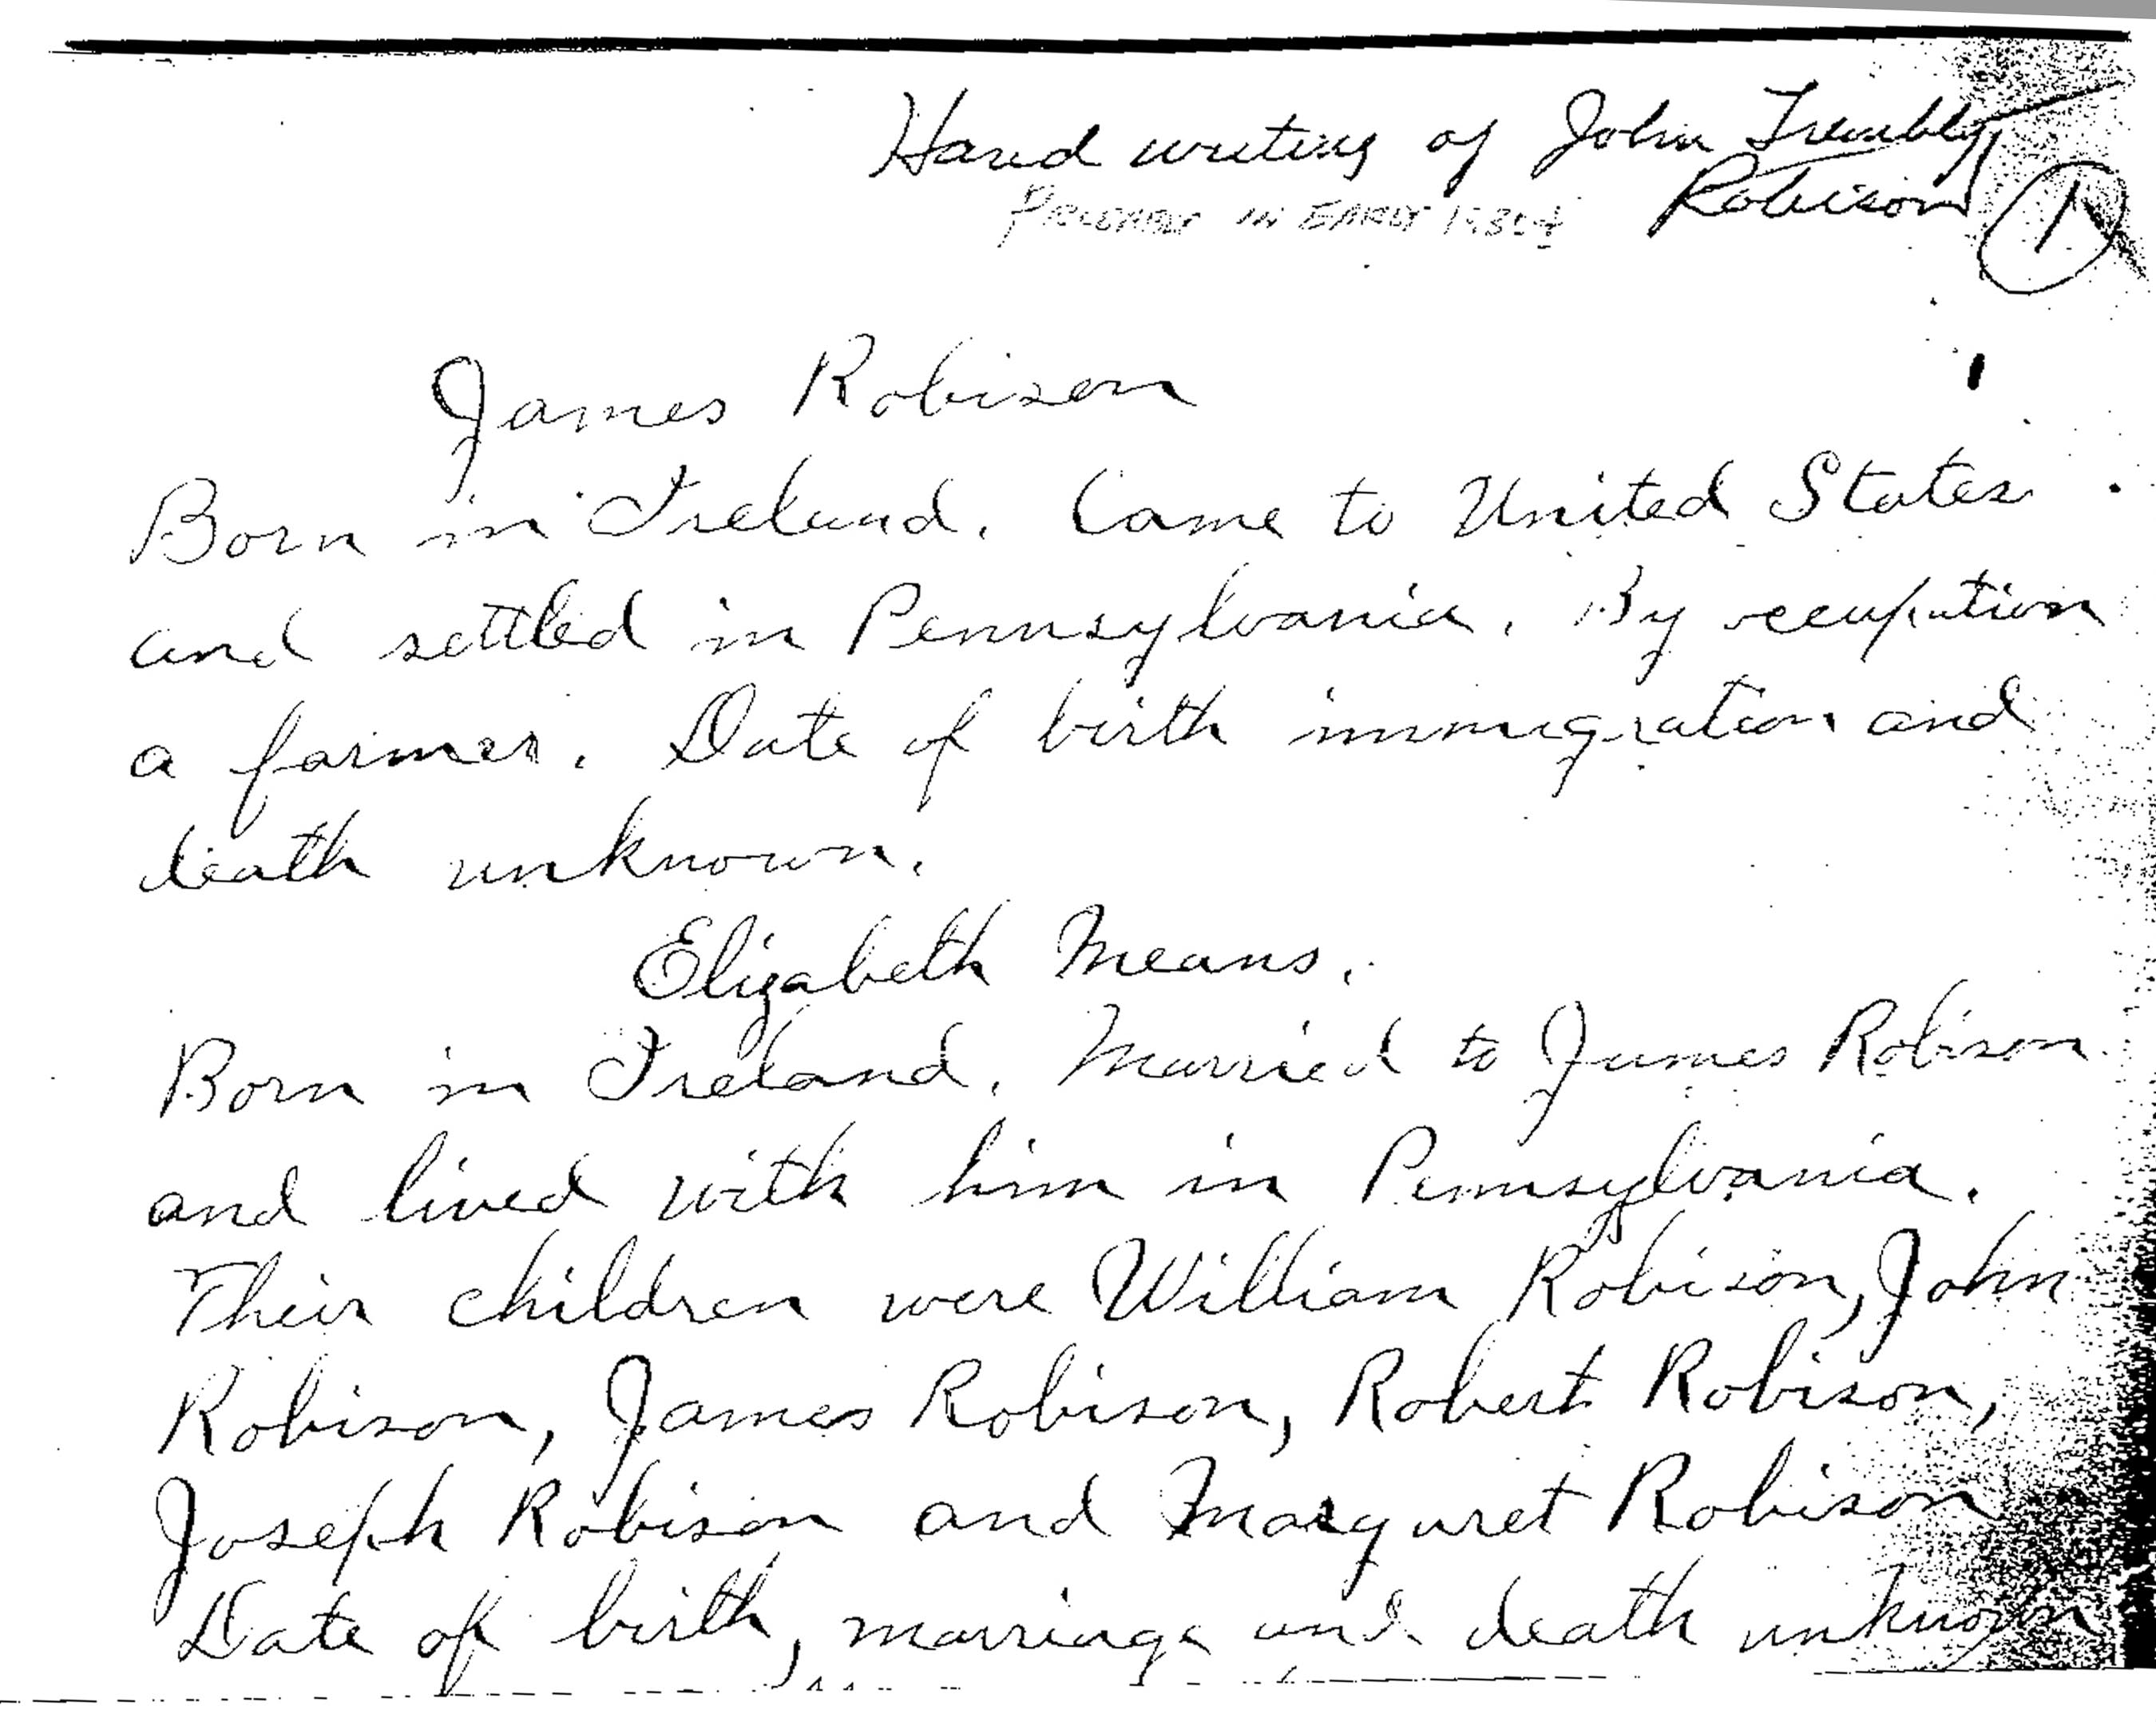 Hand writing of John Trembly
Robison 1
PROBABLY IN EARLY
James Robison
Born in Ireland. Came to United States
and settled in Pennsylvania. By occupation
a farmer. Date of birth immigration and
death unknown.
Elizabeth Means.
Born in Ireland. Married to James Robison
and lived with him in Pennsylvania.
Their children were William Robison, John
Robison, James Robison, Robert Robison,
Joseph Robison and Margaret Robison
Date of birth, marriage and death unknown